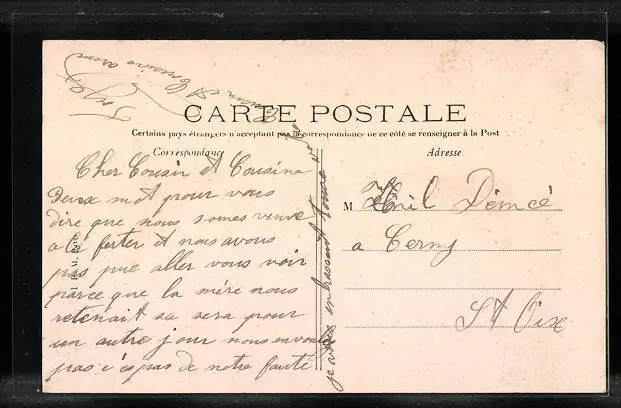 CARTE POSTALE
Certains pays étrangers n'acceptant pas la correspondance de ce côté se renseigner à la Post
Correspondance
Adresse
Cher Cousin et Cousine
deux mot pour vous
dire que nous somes venue
a la ferter et nous avons
pas pue aller vous voir
parce que la mère nous
retenait sa sera pour
un autre jour nous
pas c'est pas de notre faute
je vous embrassent tous
Cousin et Cousine
M Démcé
a Cerny
St